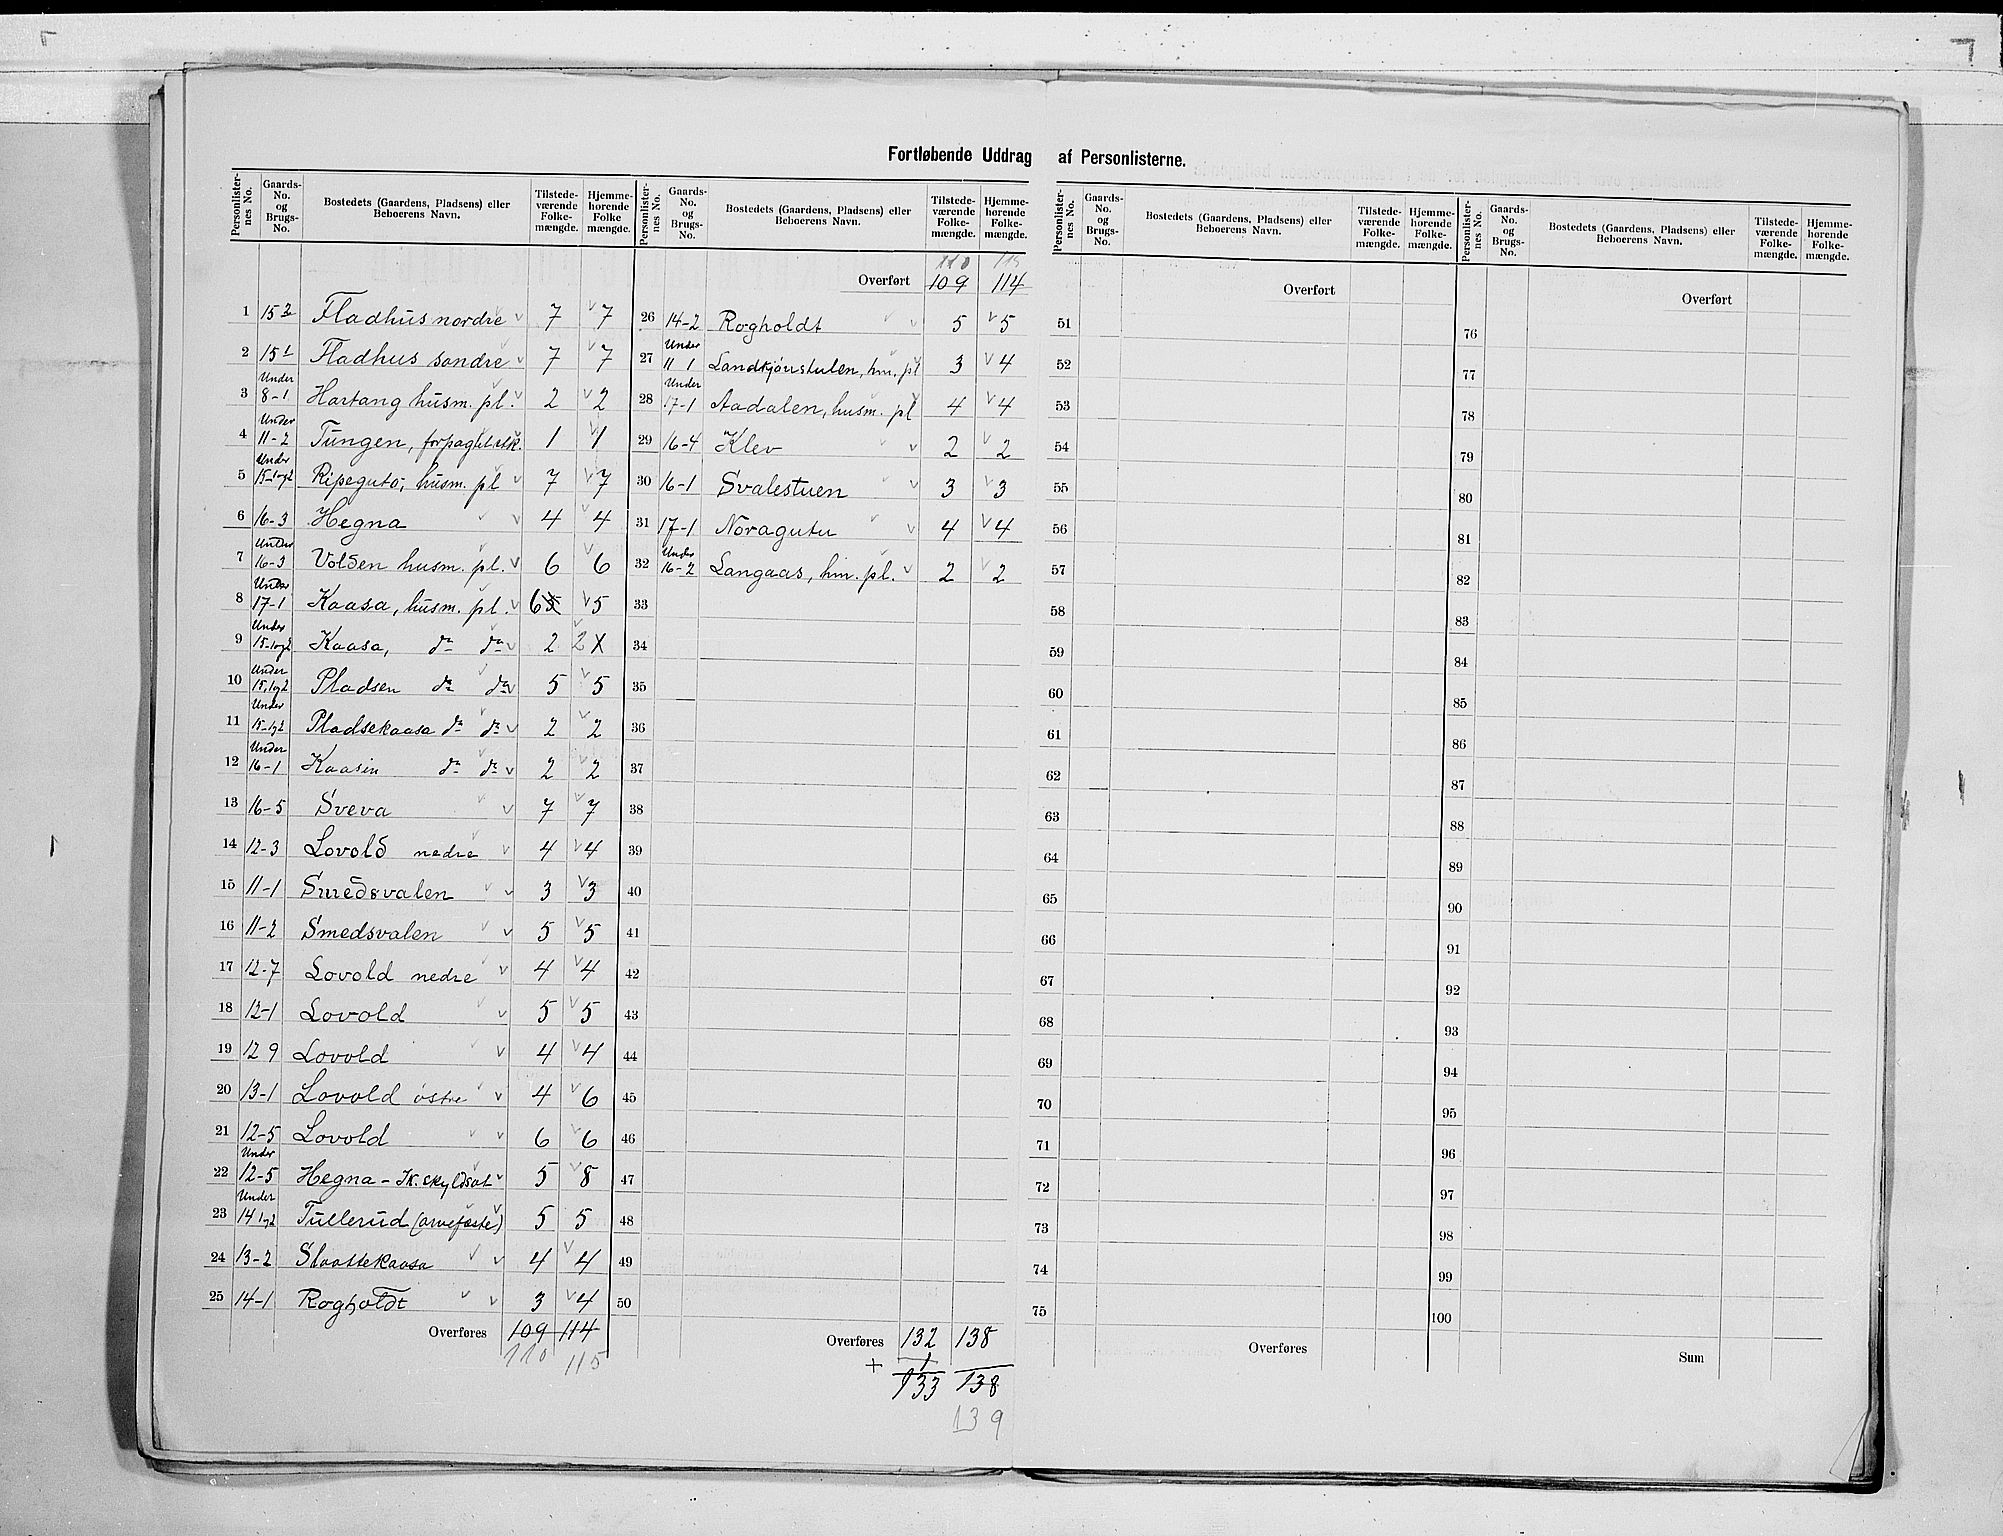 Fortløbende Uddrag af Personlisterne.
Personlister-nes No. Gaards-No. og Brugs-No. Bostedets (Gaardens, Pladsens) eller Beboerens Navn. Tilstede-værende Folke-mængde. Hjemme-hørende Folke mængde.
1 15 2 Fladhus nordre 7 7
2 15 1 Fladhus søndre 7 7
3 Under 8-1 Hartang husm. pl. 2 2
4 Under 11-2 Tungen, 1 1
5 Under 15-1og2 Ripegutø, husm. pl 7 7
6 16-3 Hegna 4 4
7 Under 16-3 Volden husm. pl. 6 6
8 Under 17-1 Kaasa, husm. pl. 6 5 5
9 Under 15-1og2 Kaasa, do do 2 2
10 Under 15,1og2 Pladsen do do 5 5
11 Under 15-1og2 Pladsekaasa do do 2 2
12 Under 16-1 Kaasin do do 2 2
13 16-5 Sveva 7 7
14 12-3 Lovold nedre 4 4
15 11-1 Smedsvalen 3 3
16 11-2 Smedsvalen 5 5
17 12-7 Lovold nedre 4 4
18 12-1 Lovold 5 5
19 12 9 Lovold 4 4
20 13-1 Lovold østre 4 6
21 12-5 Lovold 6 6
22 Under 12-5 Hegna - 5 8
23 Under 14 1og2 Tullerud (arvefæste) 5 5
24 13-2 Slaattekaasa 4 4
25 14-1 Rogholdt 3 4
Overføres 109 114
110 115
Personlister-nes No. Gaards-No. og Brugs-No. Bostedets (Gaardens, Pladsens) eller Beboerens Navn. Tilstede-værende Folke-mængde. Hjemme-hørende Folke-mængde.
110 115
Overført 109 114
26 14-2 Rogholdt 5 5
27 Under 11 1 Landkjønstulen, hm. pl 3 4
28 Under 17-1 Aadalen, husm. pl 4 4
29 16-4 Klev 2 2
30 16-1 Svalestuen 3 3
31 17-1 Noragutu 4 4
32 Under 16-2 Langaas, hm. pl. 2 2
33
34
35
36
37
38
39
40
41
42
43
44
45
46
47
48
49
50
Overføres 132 138
+ 1
133 138
139
Personlister-nes No. Gaards-No. og Brugs-No. Bostedets (Gaardens, Pladsens) eller Beboerens Navn. Tilstede-værende Folke-mængde. Hjemme-hørende Folke-mængde.
Overført
51
52
53
54
55
56
57
58
59
60
61
62
63
64
65
66
67
68
69
70
71
72
73
74
75
Overføres
Personlister-nes No. Gaards-No. og Brugs-No. Bostedets (Gaardens, Pladsens) eller Beboerens Navn. Tilstede-værende Folke-mængde. Hjemme-hørende Folke-mængde.
Overført
76
77
78
79
80
81
82
83
84
85
86
87
88
89
90
91
92
93
94
95
96
97
98
99
100
Sum